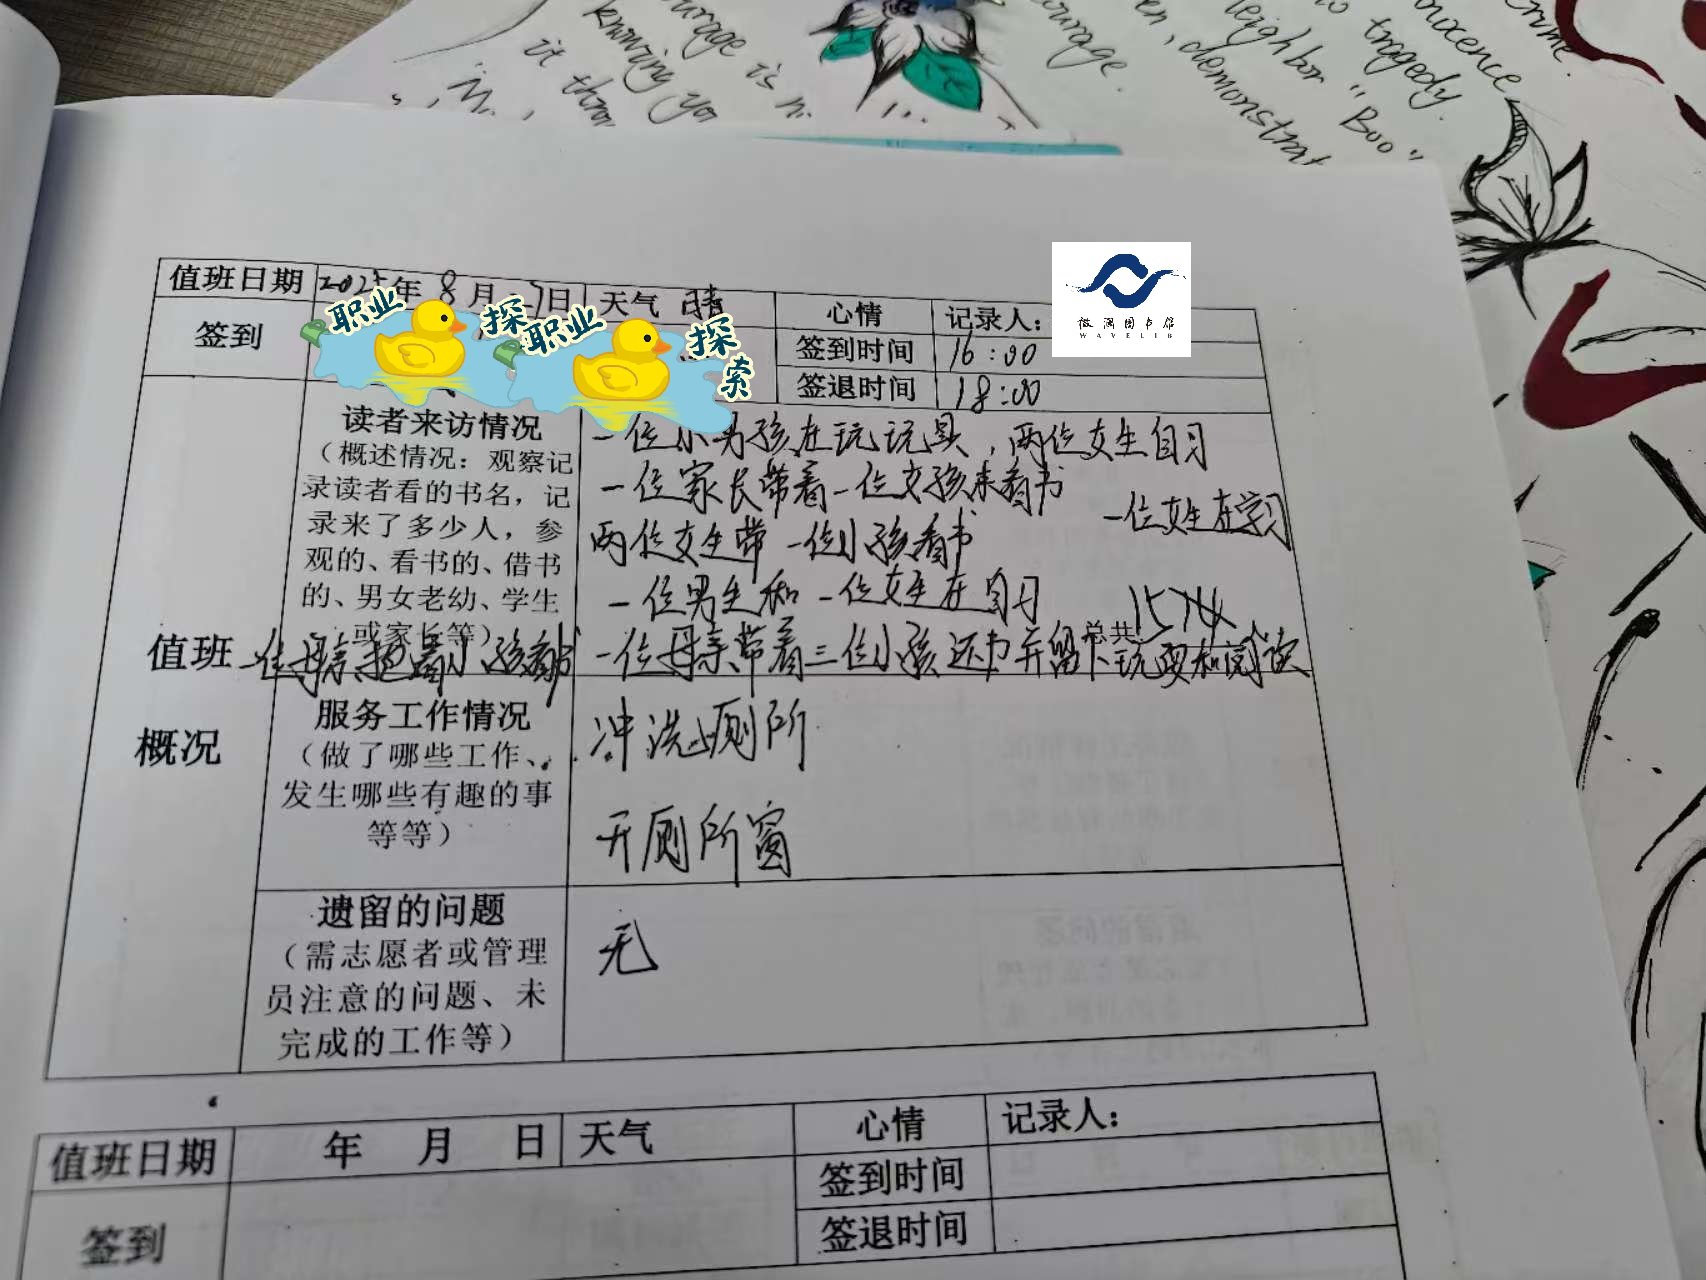 courage is n
knowing yo
it throu
courage.
en, demonstrat
neighbor "Boo"
to tragedy.
nocence
crime.
值班日期 2025年 8月 日 天气 晴 心情 记录人:
微澜图书馆
WAVELIB
签到 签到时间 16:00
签退时间 18:00
职业探
职业探索
值班
概况
读者来访情况
(概述情况:观察记
录读者看的书名,记
录来了多少人,参
观的、看书的、借书
的、男女老幼、学生
或家长等)
一位小男孩在玩玩具,两位女生自习
一位家长带着一位女孩来看书
一位女生在学习
两位女生带一位小孩看书
一位男生和一位女生在自习
总共
一位母亲带着三位小孩还书并留下玩耍和阅读
一位母亲 着小孩看书
服务工作情况
(做了哪些工作、
发生哪些有趣的事
等等)
冲洗厕所
开厕所窗
遗留的问题
(需志愿者或管理
员注意的问题、未
完成的工作等)
无
值班日期 年 月 日 天气 心情 记录人:
签到 签到时间
签退时间